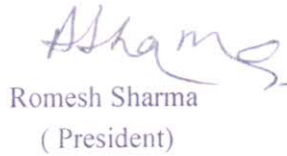 Romesh Sharma
( President)